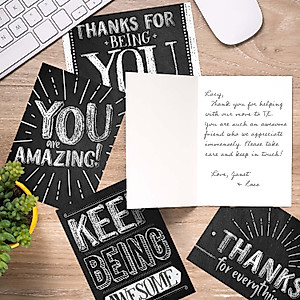 THANKS FOR
BEING
YOU
YOU
are
AMAZING!
Lucy,
Thank you for helping
with our move to TX.
You are such an awesome
friend who we appreciate
immensely. Please take
care and keep in touch!
Love, Janet
& Ross
KEEP
BEING
AWESOME
THANKS
for everything